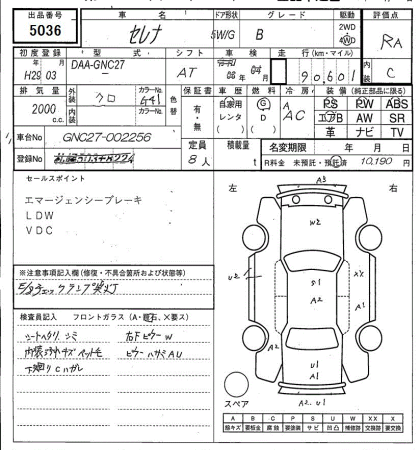 出品番号 車名 ドア形状 グレード 駆動 評価点
5036 セレナ 5W/G B 2WD 4WD RA
初度登録 型式 シフト 車検 走行(km・マイル)
H29 03 DAA-GNC27 AT 年 月 06 04 90,601 内装 C
排気量 外装色 カラーNo. 色替 保証書 車歴 燃料 冷房 装備(純正部品に限る)
2000 c.c. クロ G41 有・無 自家用 レンタ G D A AC PS PW ABS
エアB AW SR
革 ナビ TV
車台No GNC27-002256 定員 積載量 名変期限 年 月 日
登録No. 8人 t R料金 未預託・預託済 10,190円
セールスポイント
エマージェンシーブレーキ
LDW
VDC
左 右
A3
W2
U2
S1
A2
A1
A2
U1
A1
A2.U1
スペア
※注意事項記入欄(修復・不具合箇所および状態等)
検査員記入 フロントガラス(A・飛石、X要ス)
シートヘタリ シミ 右下ピラーW
内装 キズ ペット毛 ピラーハサミAU
下廻りCハガレ
A B C P S U W X XX X
線キズ 要板金 腐蝕 要塗装 サビ 凹凸 補修跡 要交換 交換跡 要交換